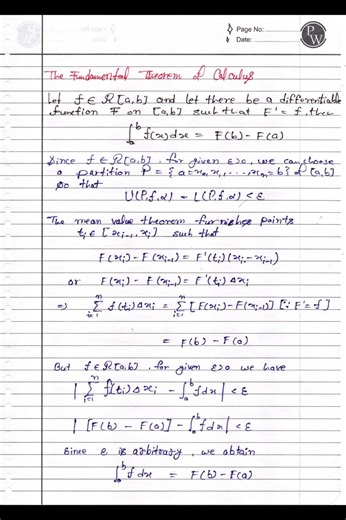 Page No:
Date:
P
W
The Fundamental Theorem of Calculus
Let f ∈ R[a,b] and let there be a differentiable
function F on [a,b] such that F' = f, then
∫_a^b f(x)dx = F(b) - F(a)
Since f ∈ R[a,b]. for given ε>0, we can choose
a partition P = {a=x₀,x₁, ..... xₙ=b} of [a,b]
so that
U(P,f,α) - L(P,f,α) < ε
The mean value theorem furnishes points
tᵢ ∈ [xᵢ₋₁, xᵢ] such that
F(xᵢ) - F(xᵢ₋₁) = F'(tᵢ)(xᵢ - xᵢ₋₁)
or F(xᵢ) - F(xᵢ₋₁) = F'(tᵢ) Δxᵢ
⇒ Σ_{i=1}^n f(tᵢ) Δxᵢ = Σ_{i=1}^n [F(xᵢ) - F(xᵢ₋₁)] [∵ F' = f]
= F(b) - F(a)
But f ∈ R[a,b]. for given ε>0 we have
| Σ_{i=1}^n f(tᵢ) Δxᵢ - ∫_a^b f dx | < ε
| [F(b) - F(a)] - ∫_a^b f dx | < ε
Since ε is arbitrary, we obtain
∫_a^b f dx = F(b) - F(a)